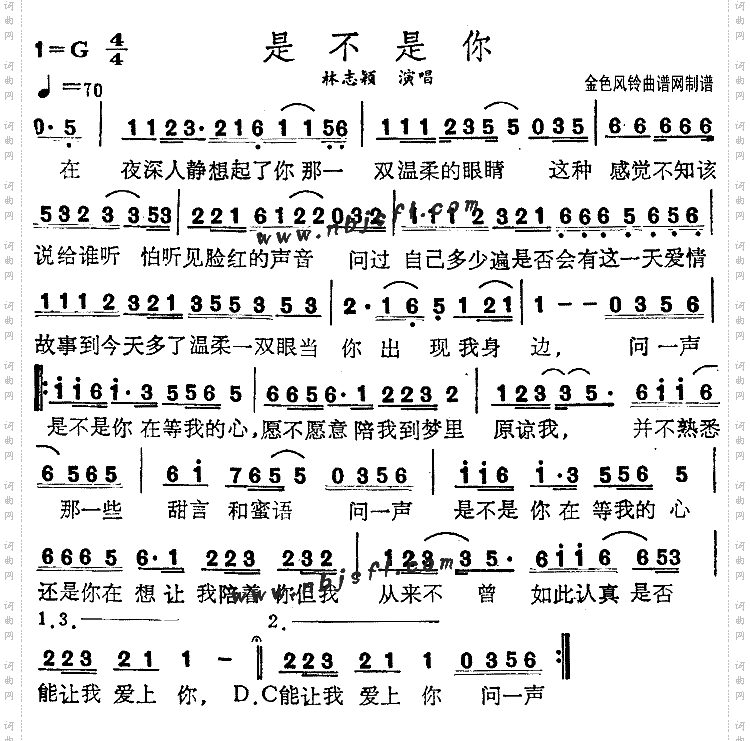 是不是你
1=G 4/4
♩=70
林志颖 演唱
金色风铃曲谱网制谱
0·5 | 1123·216 1156 | 111235 5 035 | 66666
在 夜深人静想起了你那一 双温柔的眼睛 这种 感觉不知该
5323 353 | 221 6122032 | 1·112 321 666 5656 |
说给谁听 怕听见脸红的声音 问过 自己多少遍是否会有这一天爱情
www.nbjsfl.com
1112 321 3553 53 | 2·16 5 121 | 1-- 0356 |
故事到今天多了温柔一双眼当 你出 现我身 边, 问一声
‖: i i 6 i·3 5565 | 6656·1 2232 | 1233 5· 6 i i 6
是不是你在等我的心,愿不愿意陪我到梦里 原谅我, 并不熟悉
6565 | 6i 765 5 0356 | i i 6 i·3 5565 |
那一些 甜言 和蜜语 问一声 是不是 你在 等我的心
6665 6·1 223 232 | 1233 5· 6 i i 6 653 |
还是你在 想让 我陪着 你但我 从来不 曾 如此认真是否
www.nbjsfl.com
1.3. 2.
223 21 1 - ‖ 223 21 1 0356 :‖
能让我 爱上 你, D.C能让我 爱上 你 问一声
词曲网